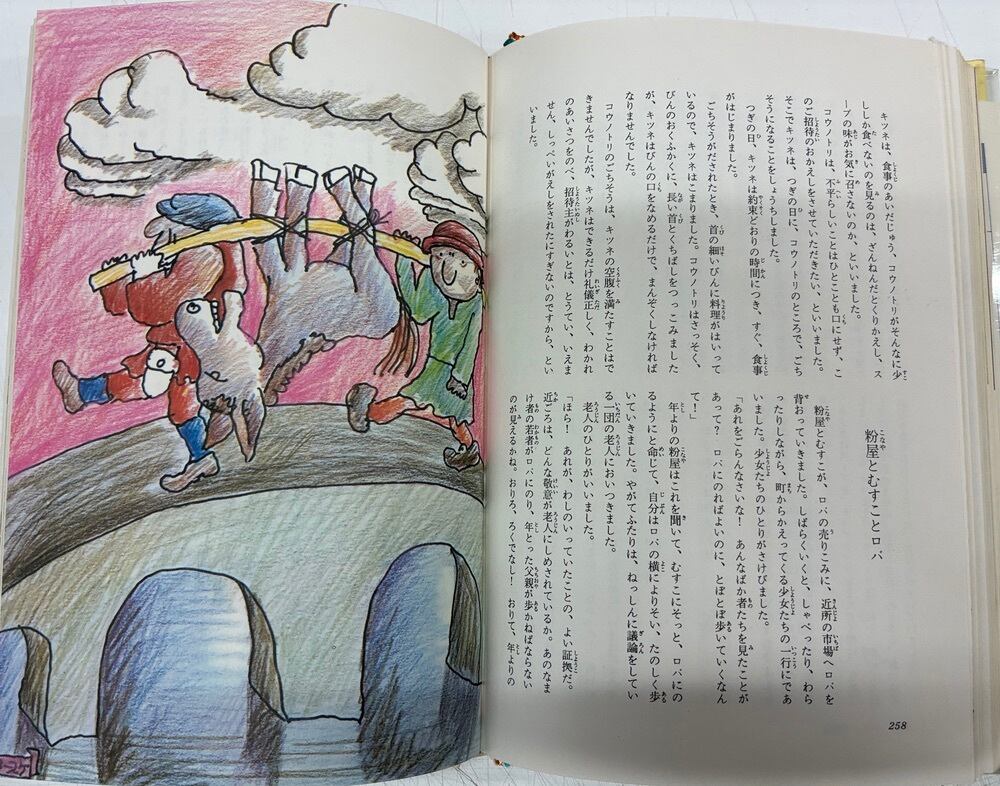 キツネは、食事のあいだじゅう、コウノトリがそんなに少
ししか食べないのを見るのは、ざんねんだとくりかえし、ス
ープの味がお気に召さないのか、といいました。
コウノトリは、不平らしいことはひとことも口にせず、こ
のご招待のおかえしをさせていただきたい、といいました。
そこでキツネは、つぎの日に、コウノトリのところで、ごち
そうになることをしょうちしました。
つぎの日、キツネは約束どおりの時間につき、すぐ、食事
がはじまりました。
ごちそうがだされたとき、首の細いびんに料理がはいって
いるので、キツネはこまりました。コウノトリはさっそく、
びんのおくふかくに、長い首とくちばしをつっこみました
が、キツネはびんの口をなめるだけで、まんぞくしなければ
なりませんでした。
コウノトリのごちそうは、キツネの空腹を満たすことはで
きませんでしたが、キツネはできるだけ礼儀正しく、わかれ
のあいさつをのべ、招待主がわるいとは、とうてい、いえま
せん、しっぺいがえしをされたにすぎないのですから、とい
いました。
粉屋とむすことロバ
粉屋とむすこが、ロバの売りこみに、近所の市場へロバを
背おっていきました。しばらくいくと、しゃべったり、わら
ったりしながら、町からかえってくる少女たちの一行にであ
いました。少女たちのひとりがさけびました。
「あれをごらんなさいな！ あんなばか者たちを見たことが
あって？ ロバにのればよいのに、とぼとぼ歩いていくなん
て！」
年よりの粉屋はこれを聞いて、むすこにそっと、ロバにの
るようにと命じて、自分はロバの横によりそい、たのしく歩
いていきました。やがてふたりは、ねっしんに議論をしてい
る一団の老人においつきました。
老人のひとりがいいました。
「ほら！ あれが、わしのいっていたことの、よい証拠だ。
近ごろは、どんな敬意が老人にしめされているか。あのなま
け者の若者がロバにのり、年とった父親が歩かねばならない
のが見えるかね。おりろ、ろくでなし！ おりて、年よりの
258